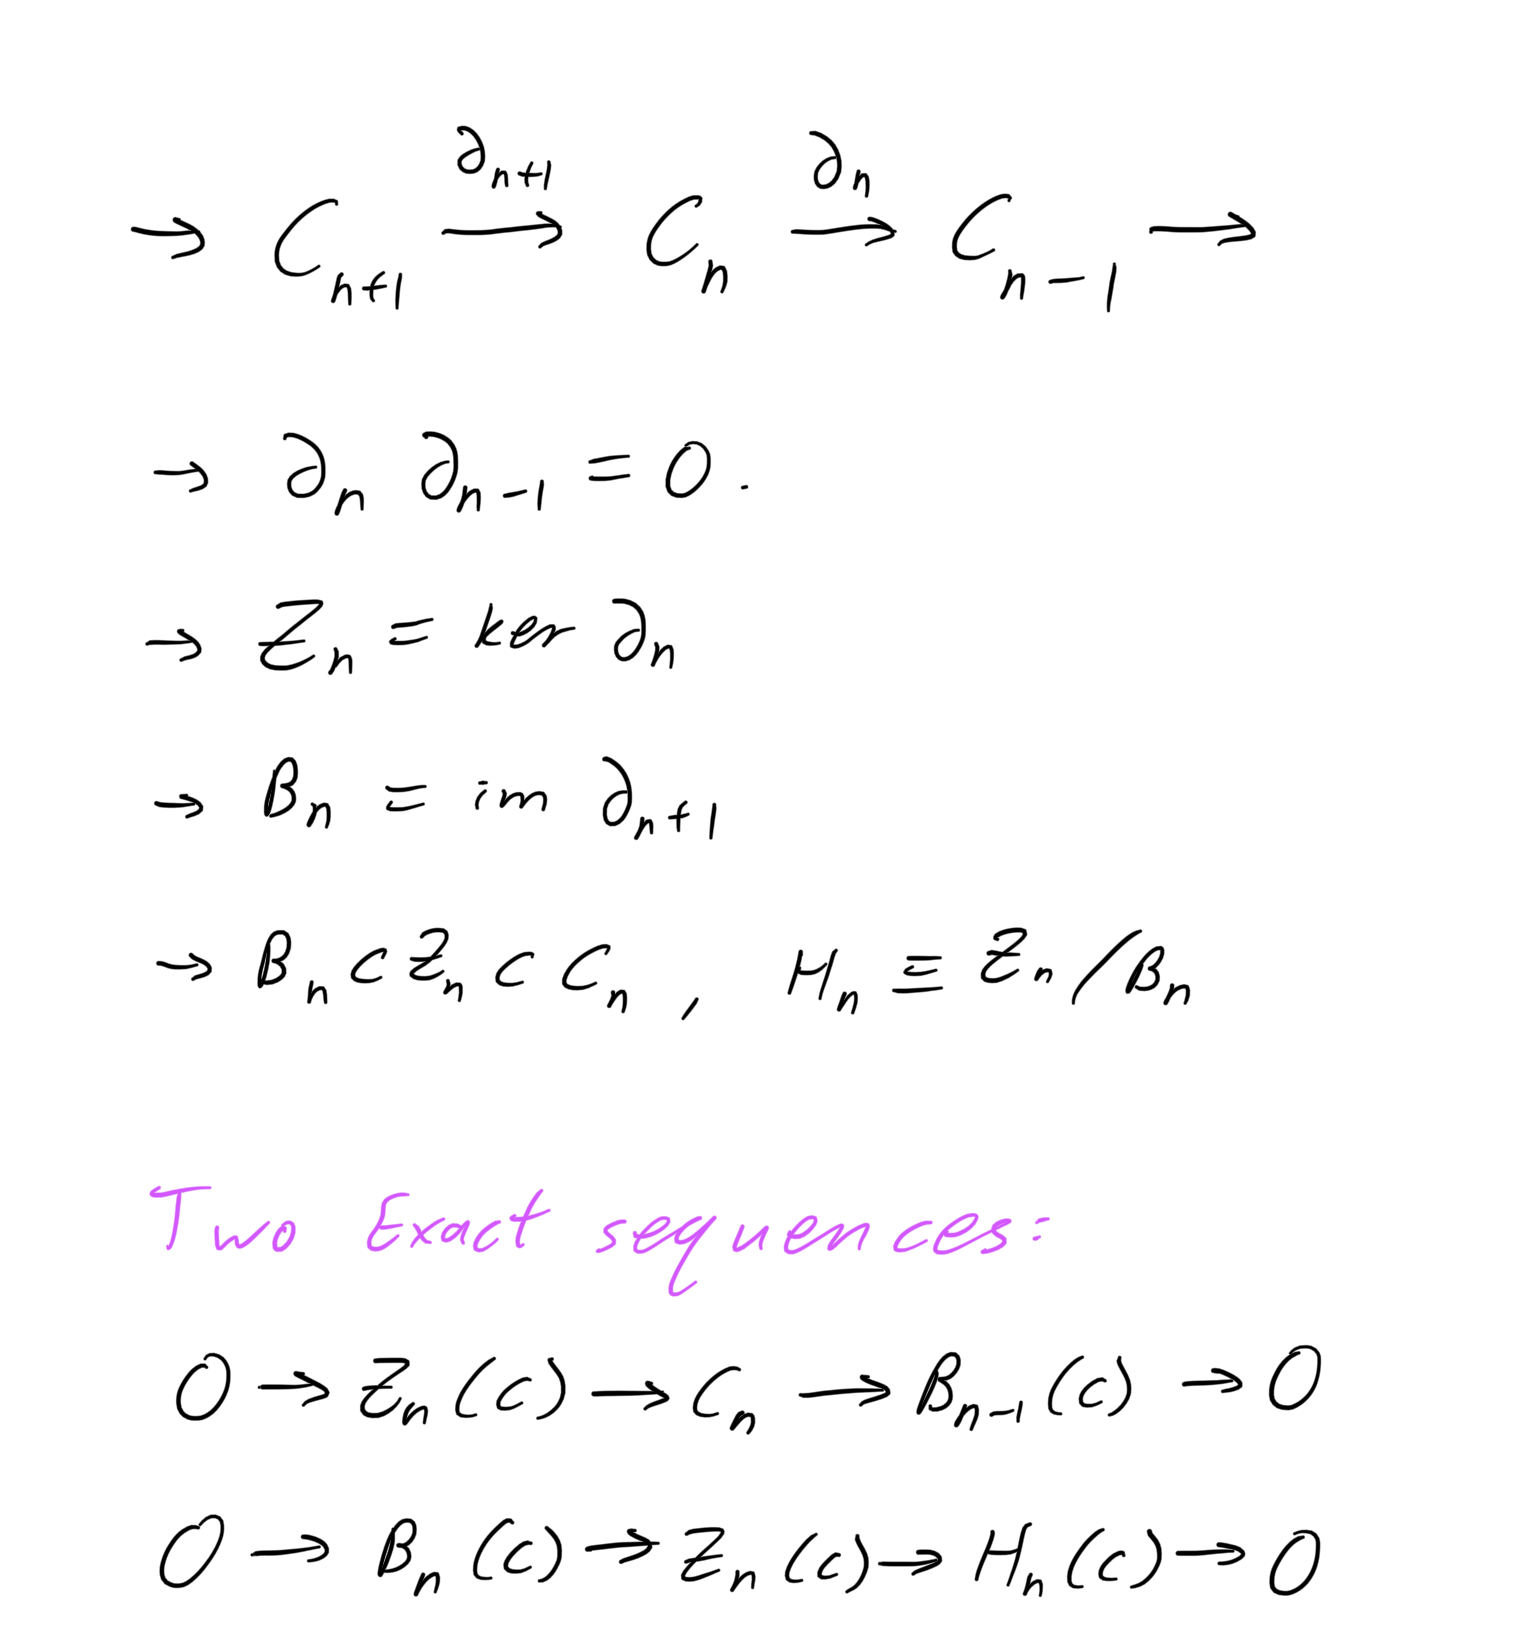 → C_{n+1} \xrightarrow{∂_{n+1}} C_n \xrightarrow{∂_n} C_{n-1} →
→ ∂_n ∂_{n-1} = 0.
→ Z_n = ker ∂_n
→ B_n = im ∂_{n+1}
→ B_n ⊂ Z_n ⊂ C_n , H_n ≡ Z_n / B_n
Two Exact sequences:
0 → Z_n(c) → C_n → B_{n-1}(c) → 0
0 → B_n(c) → Z_n(c) → H_n(c) → 0